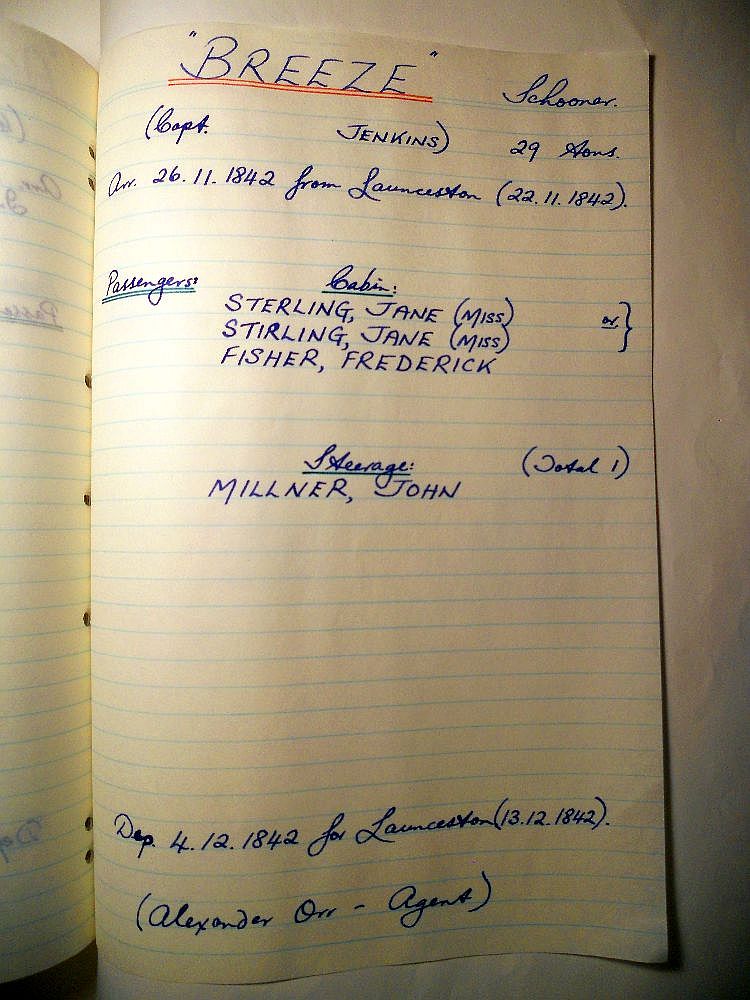 "BREEZE" Schooner.
(Capt. JENKINS) 29 tons.
Arr. 26.11.1842 from Launceston (22.11.1842).
Passengers: Cabin:
STERLING, JANE (MISS) or }
STIRLING, JANE (MISS)
FISHER, FREDERICK
Steerage: (Total 1)
MILLNER, JOHN
Dep. 4.12.1842 for Launceston (13.12.1842).
(Alexander Orr - Agent)